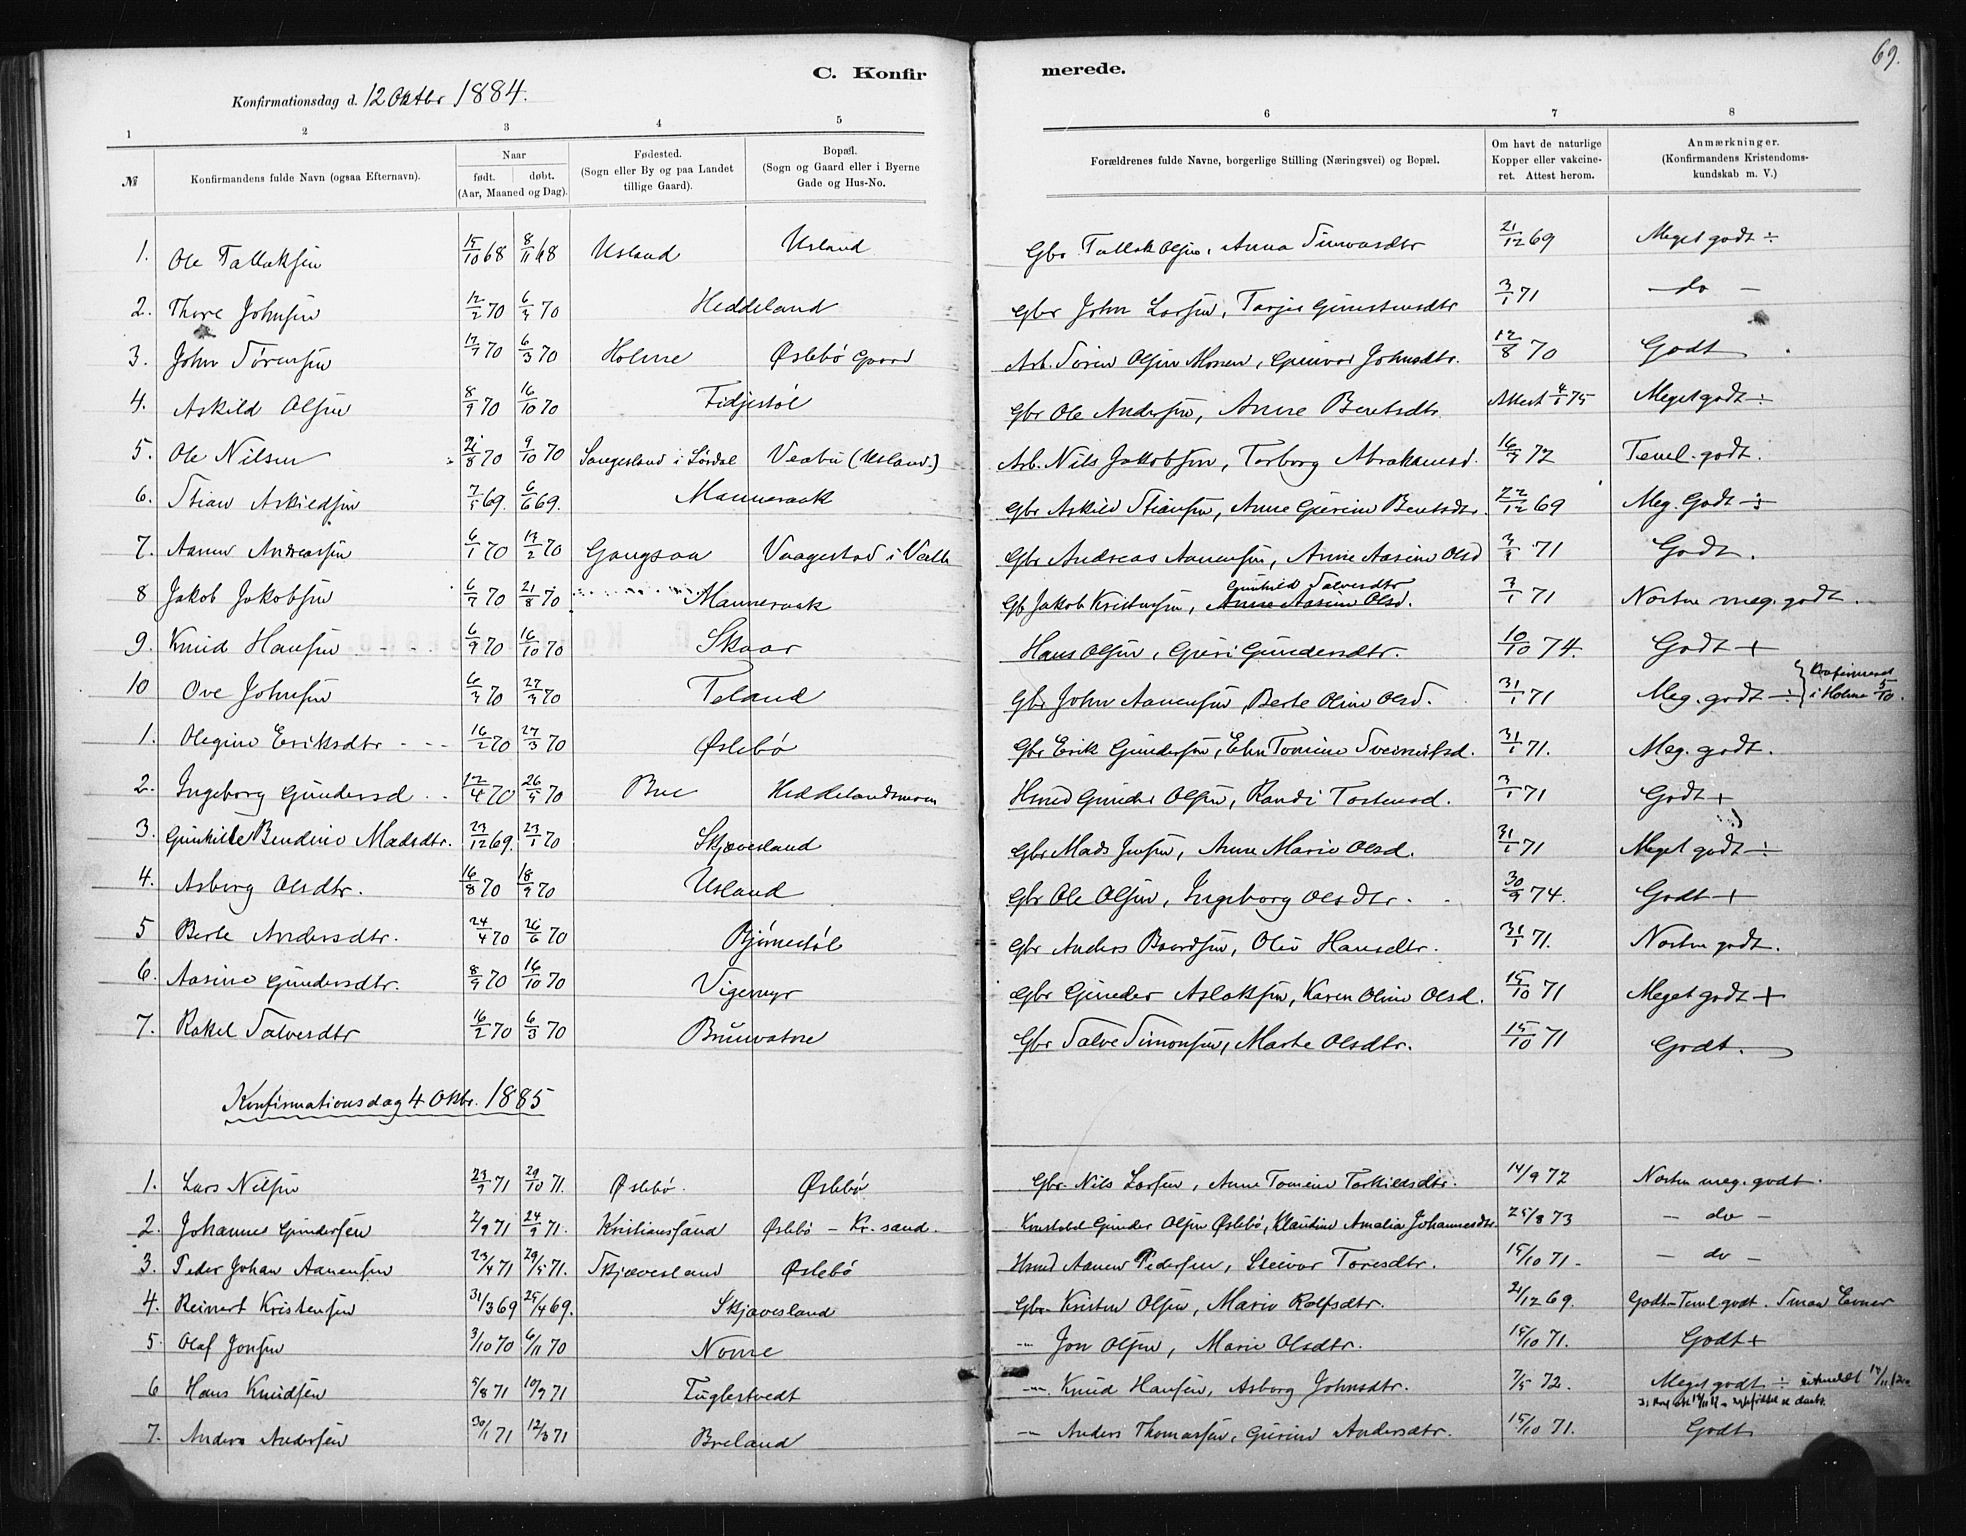 69.
C. Konfir merede.
Konfirmationsdag d. 12 Oktbr 1884.
1 2 3 4 5 6 7 8
№ Konfirmandens fulde Navn (ogsaa Efternavn). Naar født. døbt. (Aar, Maaned og Dag). Fødested. (Sogn eller By og paa Landet tillige Gaard). Bopæl. (Sogn og Gaard eller i Byerne Gade og Hus-No. Forældrenes fulde Navne, borgerlige Stilling (Næringsvei) og Bopæl. Om havt de naturlige Kopper eller vakcineret. Attest herom. Anmærkninger. (Konfirmandens Kristendomskundskab m. V.)
1. Ole Tallaksen 15/10 68 8/11 68 Usland Usland Gbr Tallak Olsen, Anna 21/12 69 Meget godt ÷
2. Thore Johnsen 12/2 70 70 Heddeland Gbr John Larsen, Tarjer 3/1 71 do
3. John Sørensen 70 6/3 70 Holme Øslebø Gaard Arb. Søren Olsen Monen, Gunvor Johnsdtr. 12/8 70 Godt
4. Askild Olsen 8/9 70 16/10 70 Fidjestøl Gbr Ole Andersen, Anne Bentsdtr. Attest 75 Meget godt ÷
5. Ole Nilsen 70 9/10 70 Sangesland i Søgdal (Usland.) Arb. Nils Jakobsen, Torborg Abrahamsd. 72 Temel. godt.
6. Stian Askildsen 69. 6/6 69. Mannevaak Gbr Askild Stiansen, Anne Gurine Bentsdtr. 22/12 69 Meg. Godt ÷
7. Aanen Andreassen 6/1 70 13/2 70 Gangsaa Vaagestad i Gbr Andreas Aanensen, Anne Aasine Olsd 71 Godt.
8 Jakob Jakobsen 6/7 70 21/8 70 Mannevaak Gb Jakob Kristensen, Gunhild Salvesdtr Anne Aasine Olsd. 3/1 71 Norsen meg. godt.
9. Knud Hansen 6/9 70 16/10 70 Skaar Hans Olsen, Guri Gundersdtr. 10/10 74. Godt +
10 Ove Johnsen 70 70 Teland Gbr John Aanensen, Berte Oline Olsd. 31/1 71 Meg. godt ÷ Konfirmeret i Holme 5/10.
1. Olegine Eriksdtr 16/2 70 27/3 70 Øslebø Gbr Erik Gundersen, Elen Tomine 31/1 71. Meg. godt.
2. Ingeborg Gundersd 12/4 70 70 Bue Heddelandsmoen Hsmd Gunder Olsen, Randi Tostensd. 3/1 71 Godt +
3. Gunhilde Bendine Madsdtr. 23/12 69. 23/1 70 Skjævesland Gbr Mads Jensen, Anne Marie Olsd. 31/1 71 Meget godt ÷
4. Asborg Olsdtr. 16/8 70 18/9 70 Usland Gbr Ole Olsen, Ingeborg Olsdtr. 30/9 74. Godt +
5 Berte Andersdtr. 24/4 70 26/6 70 Bjørnestøl Gbr Anders Baardsen, Olie Hansdtr. 31/1 71. Norsen godt.
6. Aasine Gundersdtr. 8/9 70 16/10 70 Vigemyr Gbr Gunder Aslaksen, Karen Oline Olsd. 15/10 71 Meget godt +
7. Rakel Salvesdtr 16/2 70 6/3 70 Bruuvatne Gbr Salve Simonsen, Marte Olsdtr. 15/10 71 Godt.
Konfirmationsdag 4 Oktbr. 1885
1. Lars Nilsen 23/9 71 29/10 71. Øslebø. Øslebø Gbr. Nils Larsen, Anne Tomine Torkildsdtr. 14/9 72 Norsen meg. godt.
2. Johanne Gundersen 2/9 71 24/9 71. Kristianssand Øslebø - Kr. sand. Gunder Olsen Øslebø, Klaudine Amalia Johannesdtr 25/8 73 - do -
3. Peder Johan Aanensen 23/4 71 29/5 71. Skjævesland Øslebø Hsmd Aanen Pedersen, Siever Toresdtr. 15/10 71 - do -
4. Reinert Kristensen 31/3 69 25/4 69. Skjævesland Gbr Kristen Olsen, Marie Rolfsdtr. 21/12 69. Godt - Teml. godt. Smaa Evner
5. Olaf Jonsen 3/10 70 6/11 70 Nome — Jon Olsen, Marie Olsdtr. 15/10 71. Godt +
6 Hans Knudsen 5/8 71 10/9 71 Fuglestvedt — Knud Hansen, Asborg Johnsdtr. 7/5 72. Meget godt ÷
7. Anders Andersen 30/1 71 12/3 71 Breland — Anders Thomassen, Gurine Andersdtr. 15/10 71. Godt